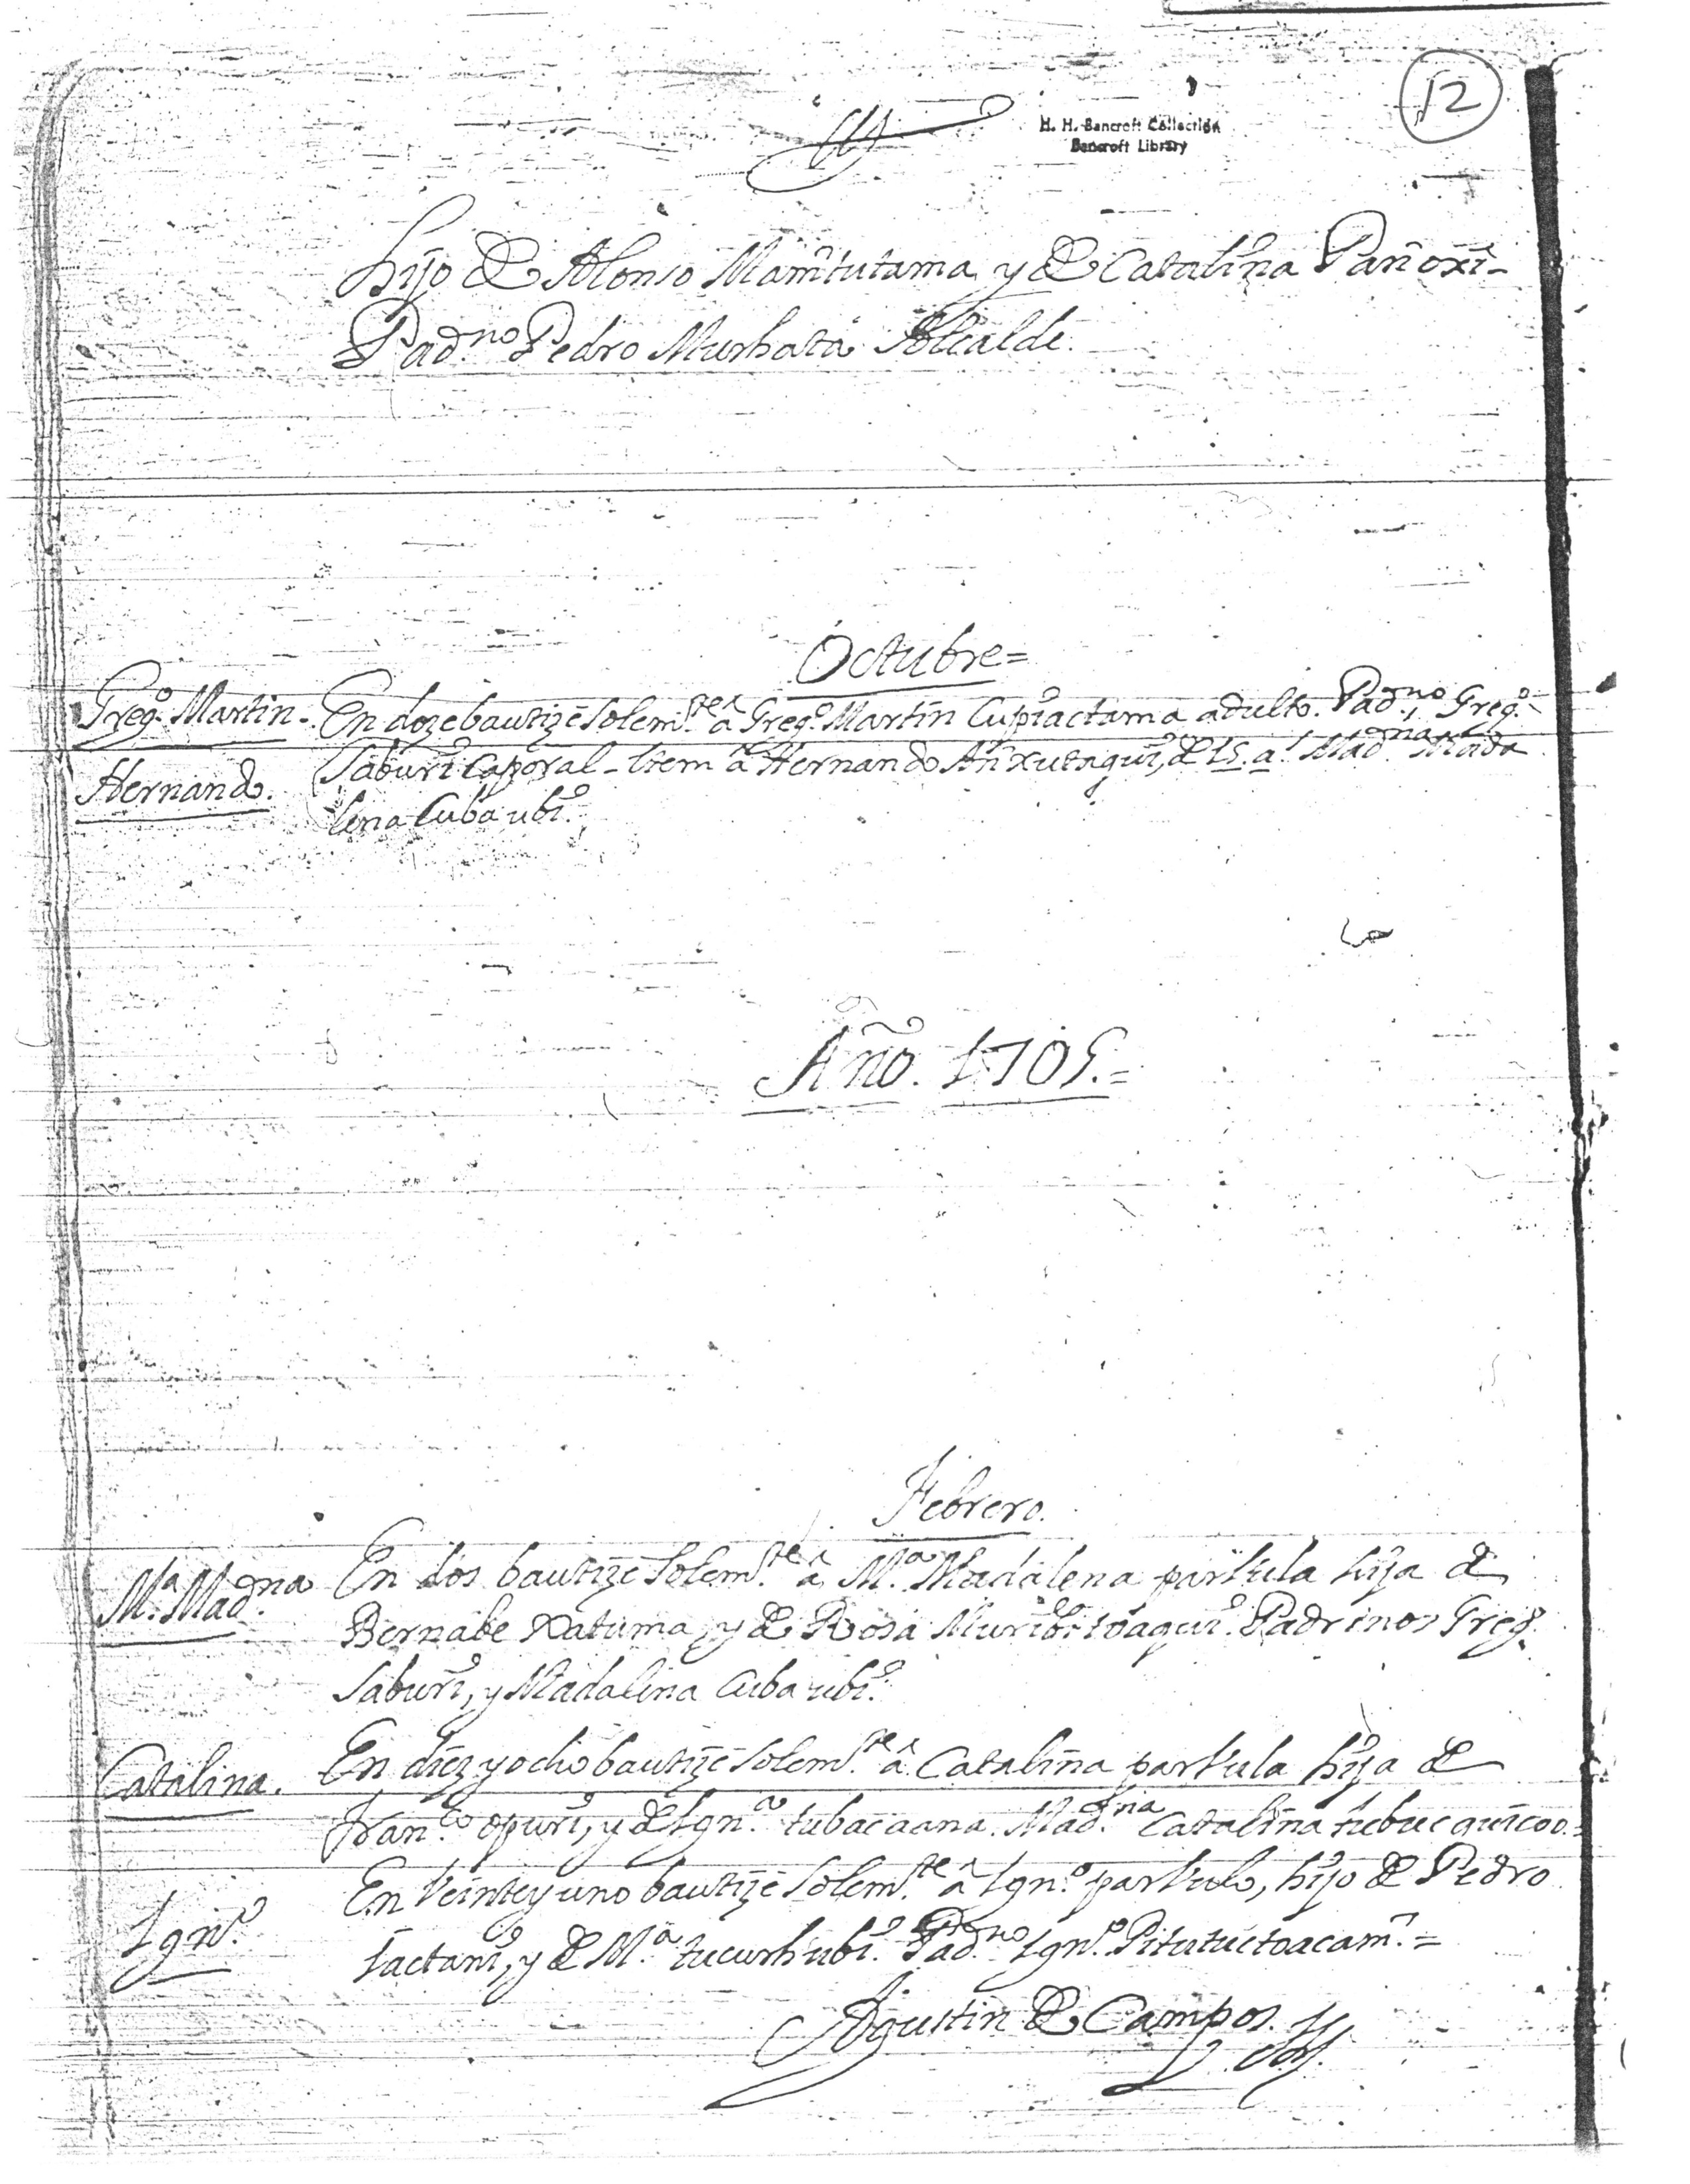 12
H. H. Bancroft Collection
Bancroft Library
hijo de Alonso Mamtutama, y de Catalina Pañoxi-
Pad.no Pedro Murhata Alcalde.
Octubre=
Greg.o Martin. En doze bautize solem.te â Greg.o Martin Cupiactama adulto. Pad.no Greg.o
Saburi Caporal - Item â Hernando Añxutaqui, de 15. a.s Mad.na Mada
Hernando.
lena Cuba ubi.
Año. 1705.=
Febrero.
M.a Mad.na En dos bautize solem.te â M.a Madalena parvula hija de
Bernabe Xatuma, y de Rosa toaqui. Padrinos Greg.o
Saburi, y Madalina Cuba ubi.
Catalina. En diez y ocho bautize solem.te â Catalina parvula hija de
Fran.co opuri, y de Ign.a tubacaana. Mad.na Catalina tubucquicoo.=
En veinte y uno bautize solem.te â Ign.o parvulo, hijo de Pedro
Ign.o
tactani, y de M.a tucurhubi. Pad.no Ign.o Pitutuctoacam.=
Agustin de Campos.